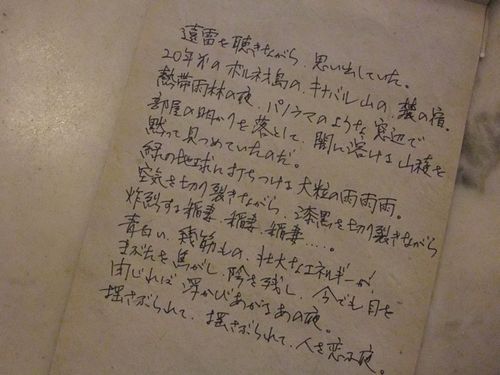 遠雷を聴きながら、思い出していた。
20年前のボルネオ島の、キナバル山の、麓の宿。
熱帯雨林の夜、パノラマのような窓辺で
部屋の明かりを落として、闇に溶ける山稜を
黙って見つめていたのだ。
緑の地球に打ちつける大粒の雨雨雨。
空気を切り裂きながら、漆黒を切り裂きながら
炸裂する稲妻、稲妻、稲妻…。
青白い、幾筋もの、壮大なエネルギーが、
まぶたを焦がし、陰を残し、今でも目を
閉じれば浮かびあがるあの夜。
揺さぶられて、揺さぶられて、人を恋ふ夜。